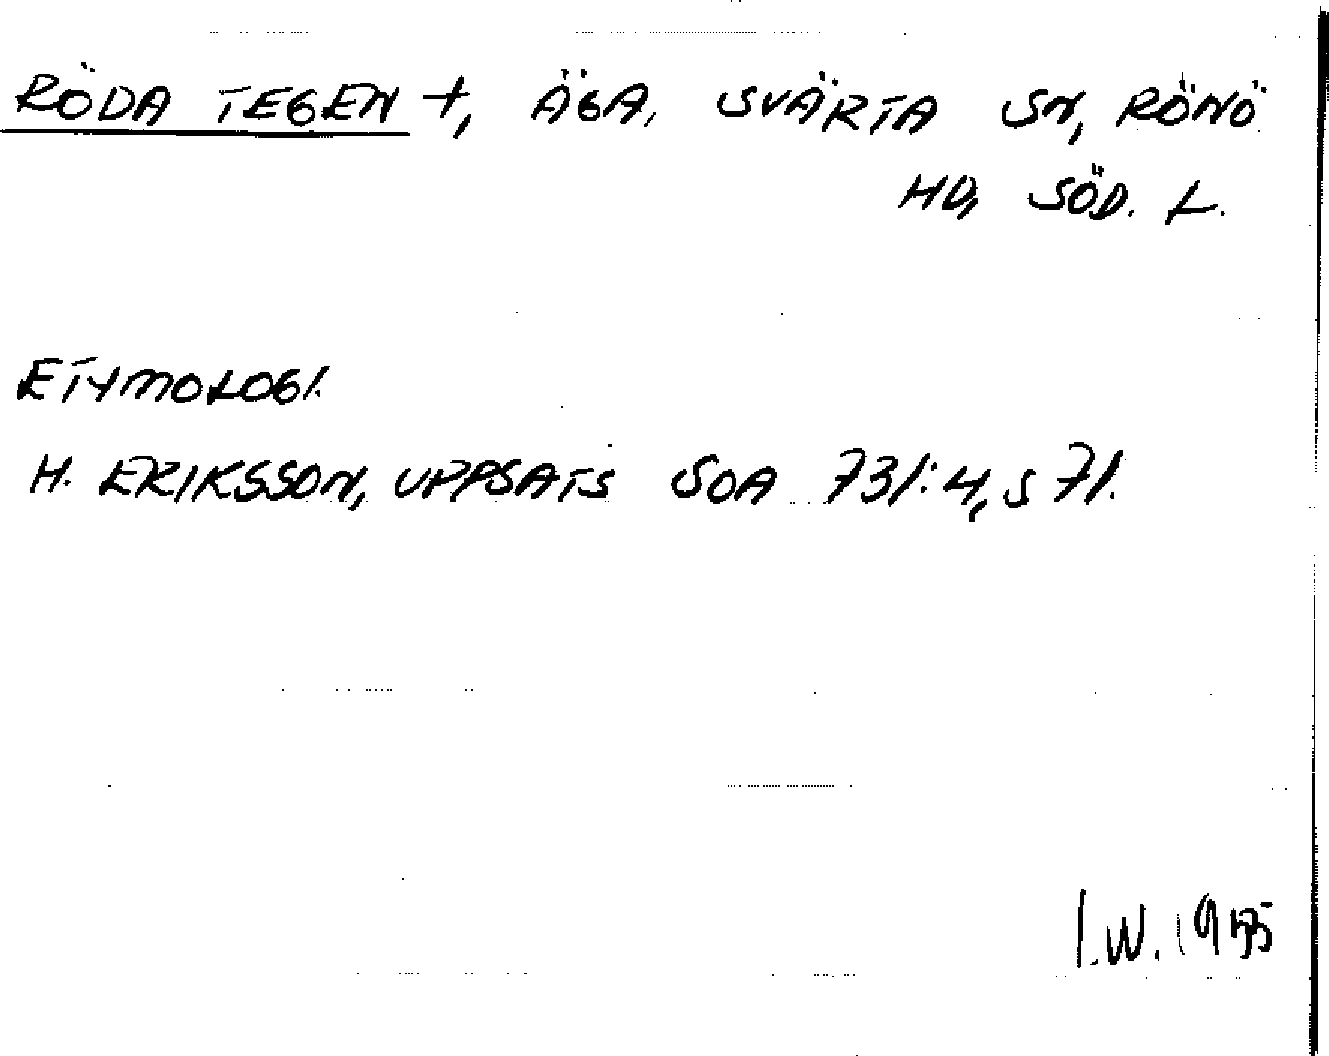 RÖDA TEGEN +, ÄGA, SVÄRTA SN, RÖNÖ
HD, SÖD. L.
ETYMOLOGI.
H. ERIKSSON, UPPSATS SOA 731:4, S 71.
I.W.